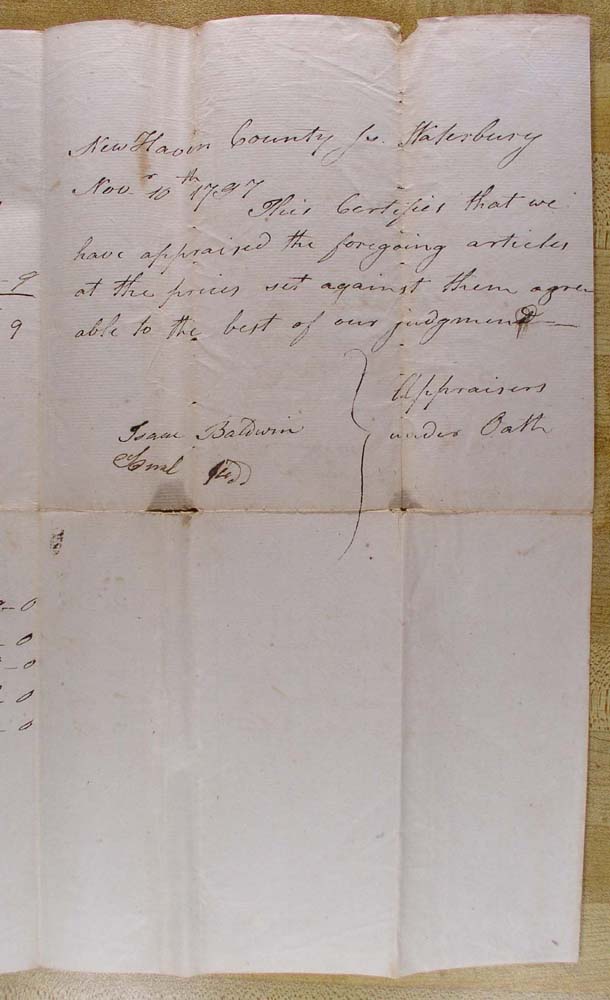 New Haven County ss. Waterbury
Novr 10th 1797
This Certifies that we
have appraised the foregoing articles
at the prices set against them agree
able to the best of our judgment
Appraisers
under Oath
Isaac Baldwin
Judd
9
9
0
0
0
0
0